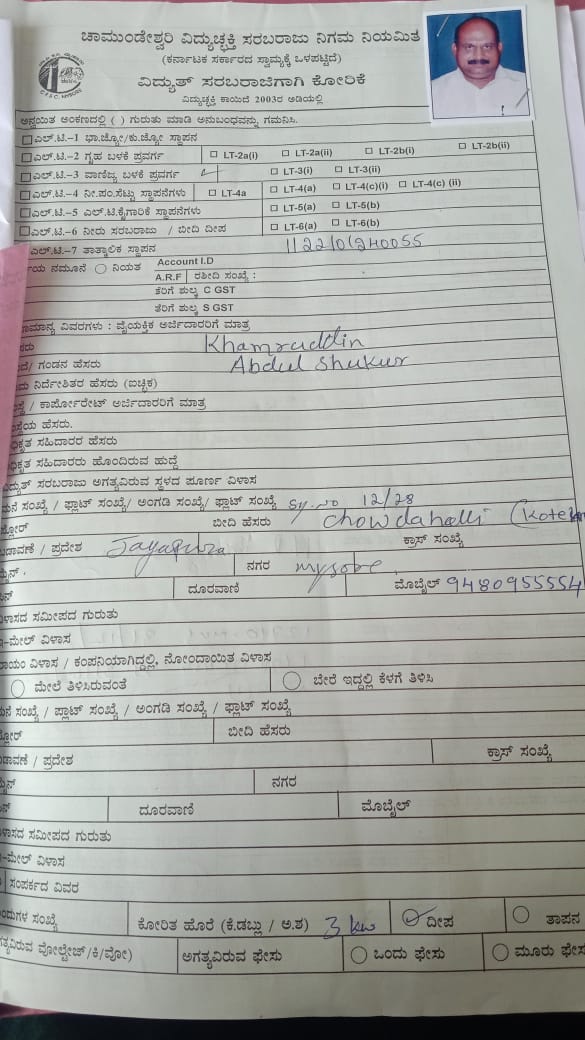 ಚಾಮುಂಡೇಶ್ವರಿ ವಿದ್ಯುಚ್ಛಕ್ತಿ ಸರಬರಾಜು ನಿಗಮ ನಿಯಮಿತ
(ಕರ್ನಾಟಕ ಸರ್ಕಾರದ ಸ್ವಾಮ್ಯಕ್ಕೆ ಒಳಪಟ್ಟಿದೆ)
ವಿದ್ಯುತ್ ಸರಬರಾಜಿಗಾಗಿ ಕೋರಿಕೆ
ವಿದ್ಯುಚ್ಛಕ್ತಿ ಕಾಯಿದೆ 2003ರ ಅಡಿಯಲ್ಲಿ
ಅನ್ವಯಿತ ಅಂಕಣದಲ್ಲಿ ( ) ಗುರುತು ಮಾಡಿ ಅನುಬಂಧವನ್ನು ಗಮನಿಸಿ.
ಎಲ್.ಟಿ.-1 ಭಾ.ಜ್ಯೋ/ಕು.ಜ್ಯೋ ಸ್ಥಾಪನ
ಎಲ್.ಟಿ.-2 ಗೃಹ ಬಳಕೆ ಪ್ರವರ್ಗ LT-2a(i) LT-2a(ii) LT-2b(i) LT-2b(ii)
ಎಲ್.ಟಿ.-3 ವಾಣಿಜ್ಯ ಬಳಕೆ ಪ್ರವರ್ಗ LT-3(i) LT-3(ii)
ಎಲ್.ಟಿ.-4 ನೀ.ಪಂ.ಸೆಟ್ಟು ಸ್ಥಾಪನೆಗಳು LT-4a LT-4(a) LT-4(c)(i) LT-4(c) (ii)
ಎಲ್.ಟಿ.-5 ಎಲ್.ಟಿ.ಕೈಗಾರಿಕೆ ಸ್ಥಾಪನೆಗಳು LT-5(a) LT-5(b)
ಎಲ್.ಟಿ.-6 ನೀರು ಸರಬರಾಜು / ಬೀದಿ ದೀಪ LT-6(a) LT-6(b)
ಎಲ್.ಟಿ.-7 ತಾತ್ಕಾಲಿಕ ಸ್ಥಾಪನ
ನಮೂನೆ ನಿಯತ Account I.D
A.R.F ರಶೀದಿ ಸಂಖ್ಯೆ :
ತೆರಿಗೆ ಶುಲ್ಕ C GST
ತೆರಿಗೆ ಶುಲ್ಕ S GST
ವಿವರಗಳು : ವೈಯಕ್ತಿಕ ಅರ್ಜಿದಾರರಿಗೆ ಮಾತ್ರ
Khamruddin
ಗಂಡನ ಹೆಸರು Abdul Shukur
ನಿರ್ದೇಶಿತರ ಹೆಸರು (ಐಚ್ಛಿಕ)
/ ಕಾರ್ಪೋರೇಟ್ ಅರ್ಜಿದಾರರಿಗೆ ಮಾತ್ರ
ಹೆಸರು.
ಸಹಿದಾರರ ಹೆಸರು
ಸಹಿದಾರರು ಹೊಂದಿರುವ ಹುದ್ದೆ
ಸರಬರಾಜು ಅಗತ್ಯವಿರುವ ಸ್ಥಳದ ಪೂರ್ಣ ವಿಳಾಸ
ಸಂಖ್ಯೆ / ಫ್ಲಾಟ್ ಸಂಖ್ಯೆ/ ಅಂಗಡಿ ಸಂಖ್ಯೆ/ ಫ್ಲಾಟ್ ಸಂಖ್ಯೆ Sy. no 12/28
ಬೀದಿ ಹೆಸರು Chowdahalli
/ ಪ್ರದೇಶ Jayapura ಕ್ರಾಸ್ ಸಂಖ್ಯೆ
ನಗರ mysore
ದೂರವಾಣಿ ಮೊಬೈಲ್ 9480955554
ಸಮೀಪದ ಗುರುತು
ಇ-ಮೇಲ್ ವಿಳಾಸ
ವಿಳಾಸ / ಕಂಪನಿಯಾಗಿದ್ದಲ್ಲಿ, ನೋಂದಾಯಿತ ವಿಳಾಸ
ಮೇಲೆ ತಿಳಿಸಿರುವಂತೆ ಬೇರೆ ಇದ್ದಲ್ಲಿ ಕೆಳಗೆ ತಿಳಿಸಿ
ಸಂಖ್ಯೆ / ಪ್ಲಾಟ್ ಸಂಖ್ಯೆ / ಅಂಗಡಿ ಸಂಖ್ಯೆ / ಫ್ಲಾಟ್ ಸಂಖ್ಯೆ
ಬೀದಿ ಹೆಸರು
/ ಪ್ರದೇಶ ಕ್ರಾಸ್ ಸಂಖ್ಯೆ
ನಗರ
ದೂರವಾಣಿ ಮೊಬೈಲ್
ಸಮೀಪದ ಗುರುತು
ವಿಳಾಸ
ಸಂಪರ್ಕದ ವಿವರ
ಸಂಖ್ಯೆ ಕೋರಿತ ಹೊರೆ (ಕೆ.ಡಬ್ಲು / ಅ.ಶ) 3 kw ದೀಪ ತಾಪನ
ವೋಲ್ಟೇಜ್/ಕಿ/ವೋ) ಅಗತ್ಯವಿರುವ ಫೇಸು ಒಂದು ಫೇಸು ಮೂರು ಫೇಸ